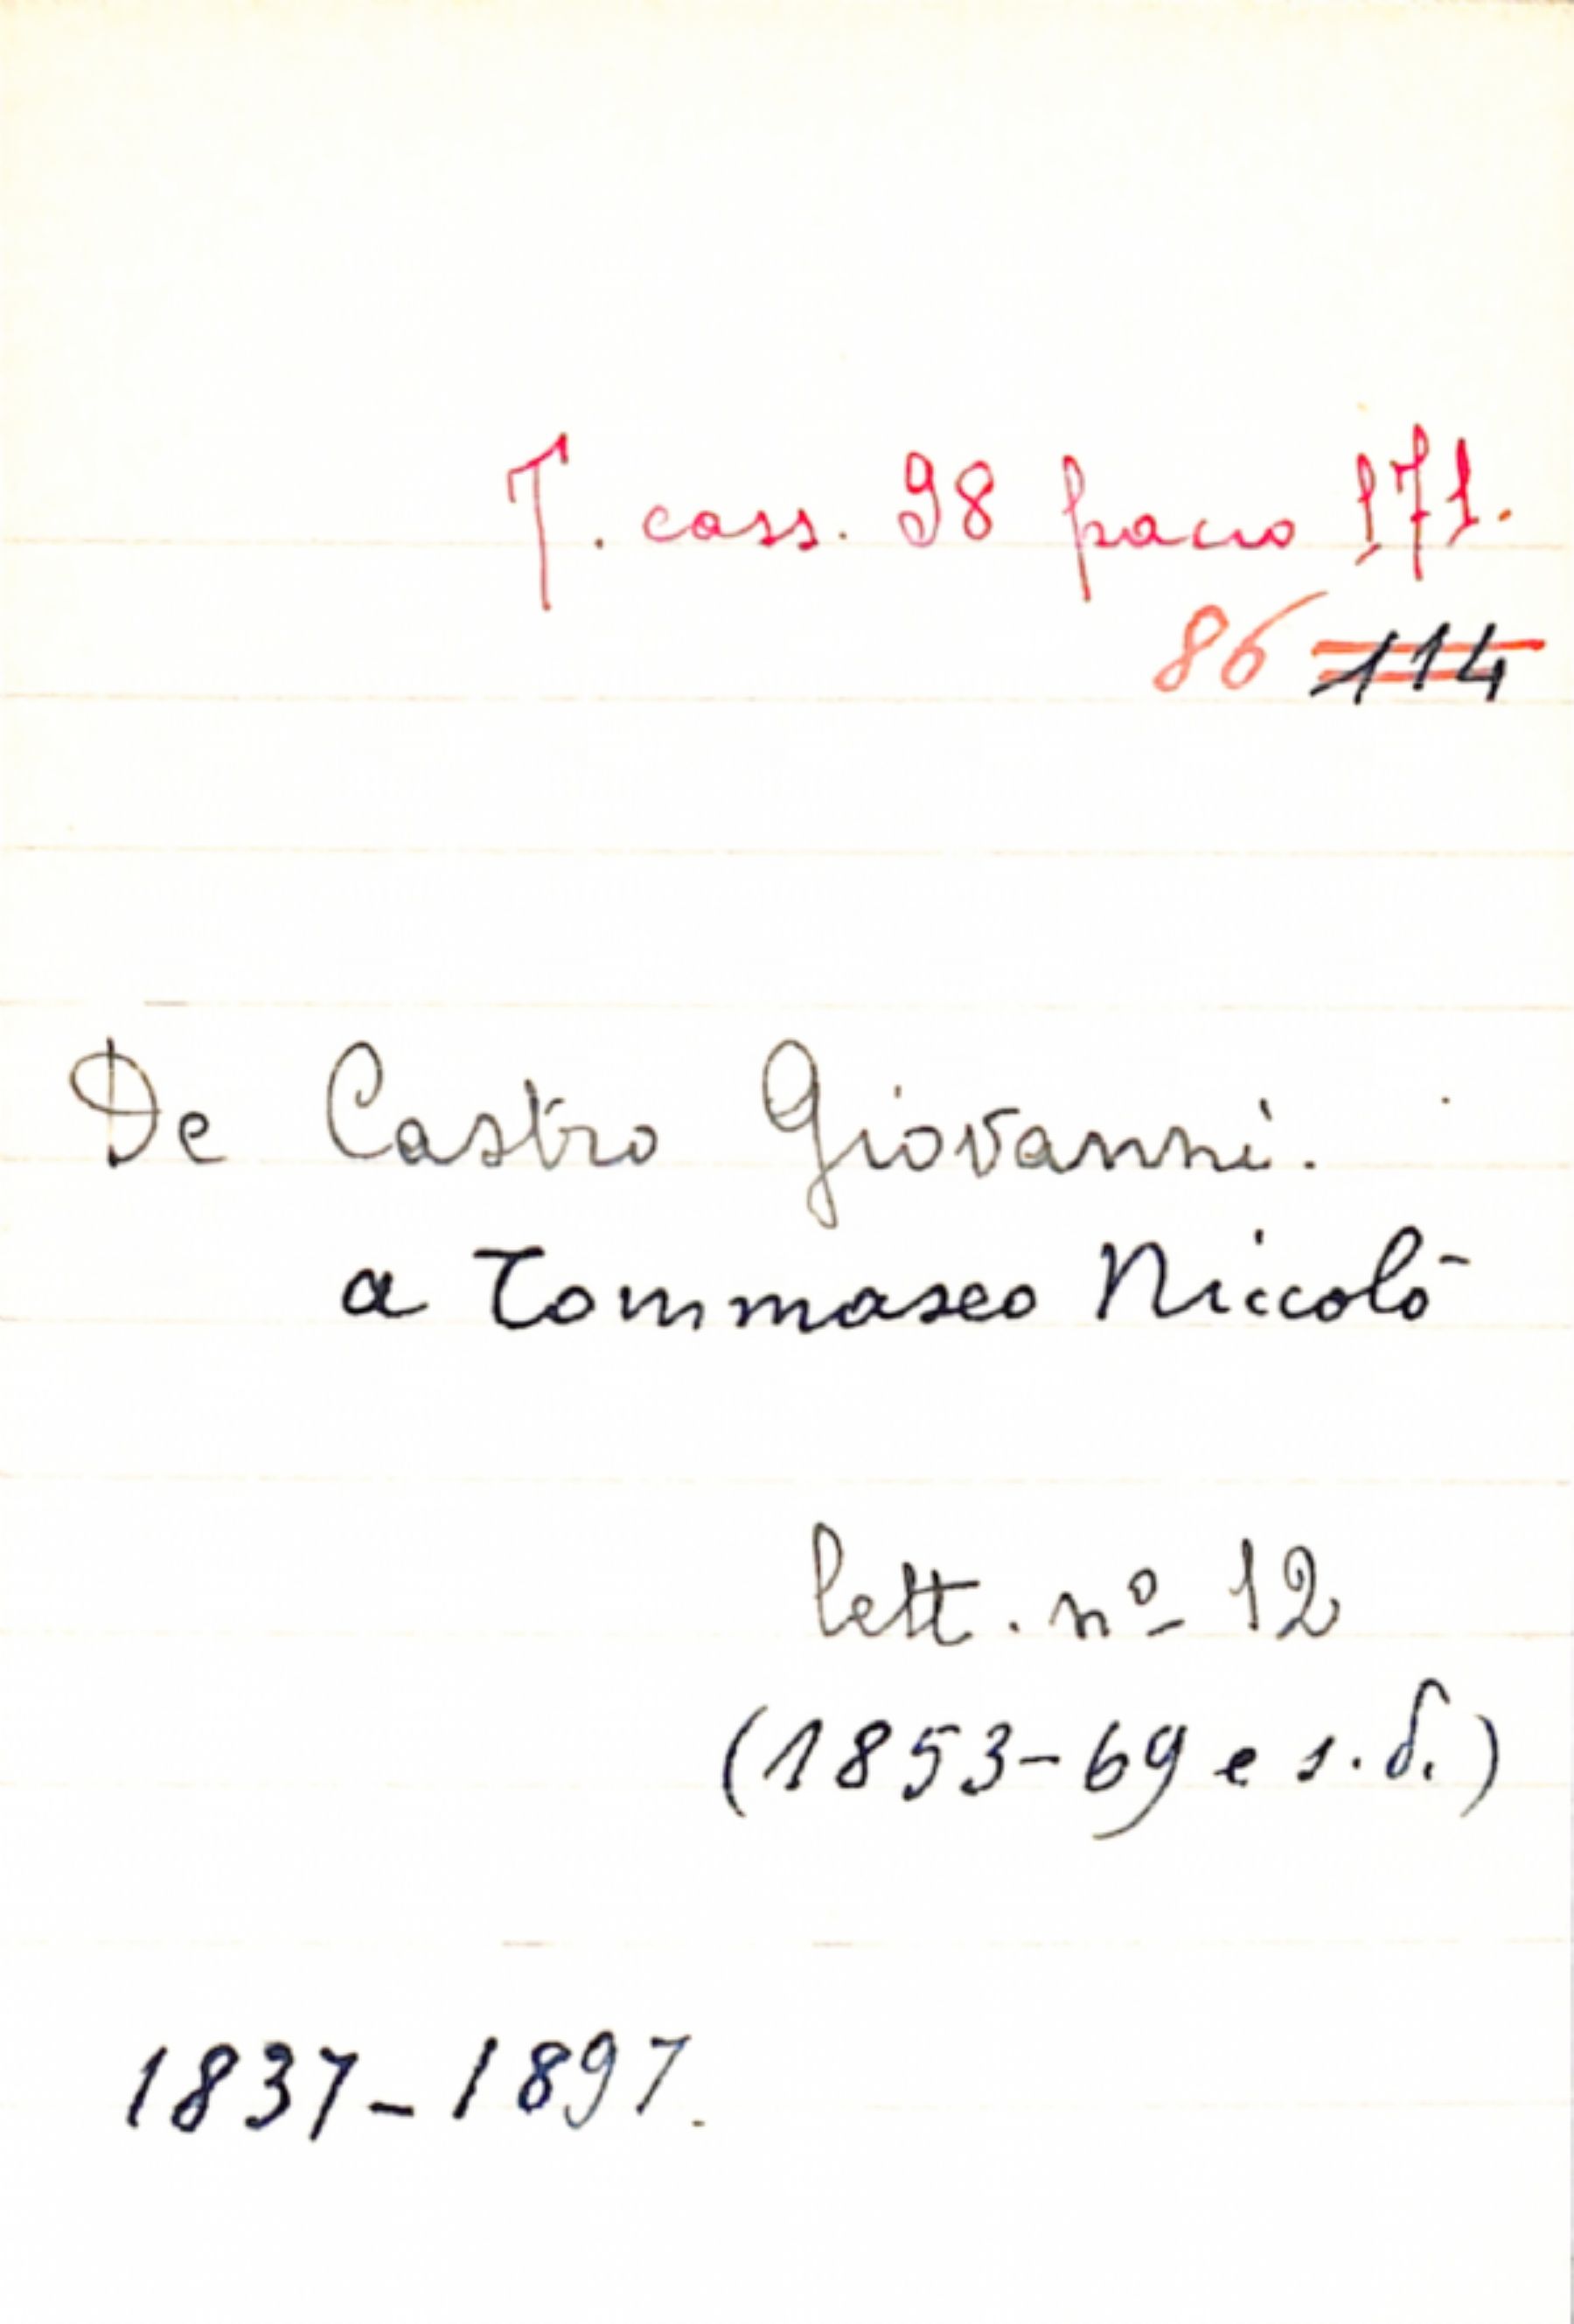 T. cass. 98 pacco 171.
86 114
De Castro Giovanni.
a Tommaseo Niccolò
lett. nº 12
(1853-69 e s.d.)
1837-1897.